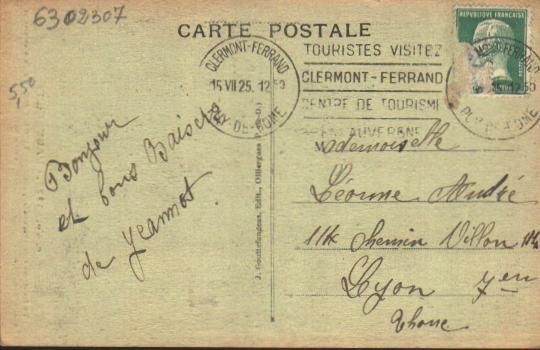 6302307
5,50
CARTE POSTALE
CLERMONT-FERRAND
15 VII 25. 12
PUY-DE-DOME
TOURISTES VISITEZ
CLERMONT-FERRAND
CENTRE DE TOURISME
AUVERGNE
REPUBLIQUE FRANÇAISE
Bonjour
et bons Baisers
de Jeannot.
J. Gouttefangeas, Édit., Olliergues (P.-de-D.)
Mademoiselle
Léonne André
Chemin Villon
Lyon 7em
Rhone